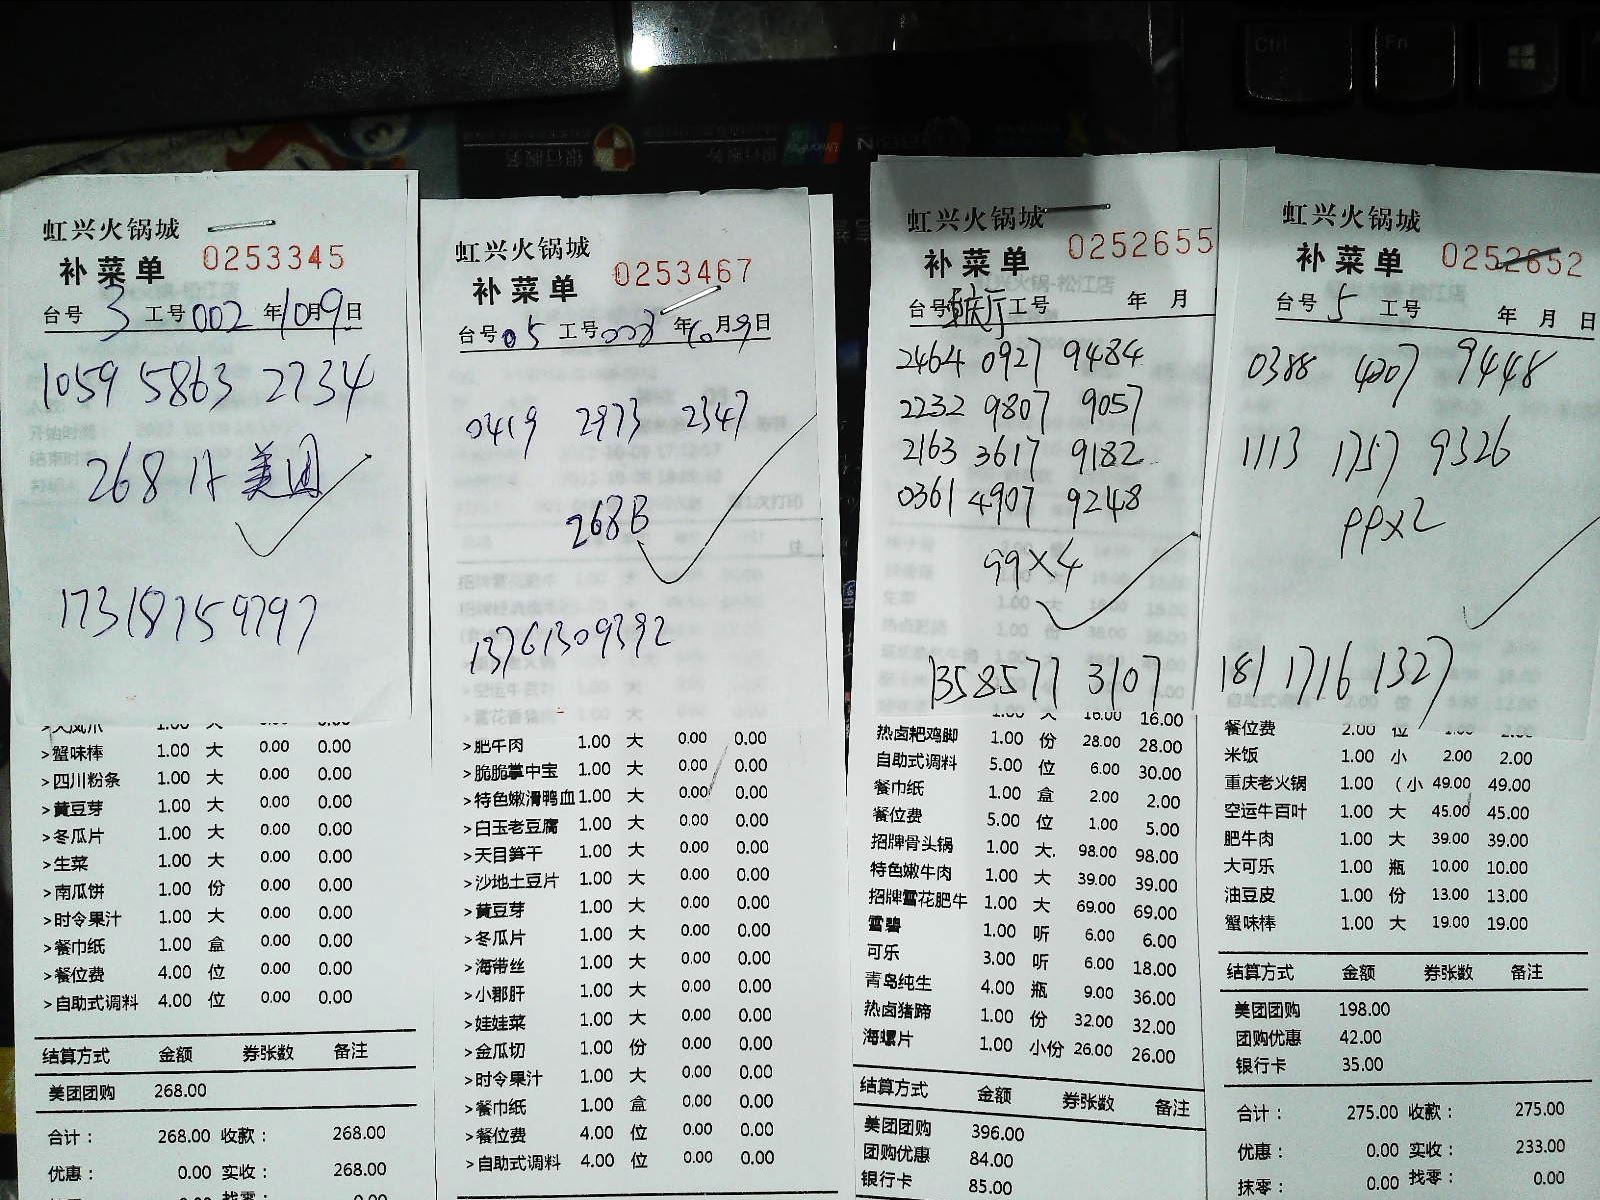 虹兴火锅城
补菜单 0253345
台号 3 工号 002 年 10月9日
1059 5863 2734
268 A 美团
17318759797
>蟹味棒 1.00 大 0.00 0.00
>四川粉条 1.00 大 0.00 0.00
>黄豆芽 1.00 大 0.00 0.00
>冬瓜片 1.00 大 0.00 0.00
>生菜 1.00 大 0.00 0.00
>南瓜饼 1.00 份 0.00 0.00
>时令果汁 1.00 大 0.00 0.00
>餐巾纸 1.00 盒 0.00 0.00
>餐位费 4.00 位 0.00 0.00
>自助式调料 4.00 位 0.00 0.00
结算方式 金额 券张数 备注
美团团购 268.00
合计： 268.00 收款： 268.00
优惠： 0.00 实收： 268.00
虹兴火锅城
补菜单 0253467
台号 05 工号 003 年 10月9日
0419 2973 2347
268B
13761309392
>肥牛肉 1.00 大 0.00 0.00
>脆脆掌中宝 1.00 大 0.00 0.00
>特色嫩滑鸭血 1.00 大 0.00 0.00
>白玉老豆腐 1.00 大 0.00 0.00
>天目笋干 1.00 大 0.00 0.00
>沙地土豆片 1.00 大 0.00 0.00
>黄豆芽 1.00 大 0.00 0.00
>冬瓜片 1.00 大 0.00 0.00
>海带丝 1.00 大 0.00 0.00
>小郡肝 1.00 大 0.00 0.00
>娃娃菜 1.00 大 0.00 0.00
>金瓜切 1.00 份 0.00 0.00
>时令果汁 1.00 大 0.00 0.00
>餐巾纸 1.00 盒 0.00 0.00
>餐位费 4.00 位 0.00 0.00
>自助式调料 4.00 位 0.00 0.00
虹兴火锅城
补菜单 0252655
台号 重庆厅 工号 年 月
2464 0927 9484
2232 9807 9057
2163 3617 9182
0361 4907 9248
99×4
1358577 3107
1.00 大 16.00 16.00
热卤耙鸡脚 1.00 份 28.00 28.00
自助式调料 5.00 位 6.00 30.00
餐巾纸 1.00 盒 2.00 2.00
餐位费 5.00 位 1.00 5.00
招牌骨头锅 1.00 大. 98.00 98.00
特色嫩牛肉 1.00 大 39.00 39.00
招牌雪花肥牛 1.00 大 69.00 69.00
雪碧 1.00 听 6.00 6.00
可乐 3.00 听 6.00 18.00
青岛纯生 4.00 瓶 9.00 36.00
热卤猪蹄 1.00 份 32.00 32.00
海螺片 1.00 小份 26.00 26.00
结算方式 金额 券张数 备注
美团团购 396.00
团购优惠 84.00
银行卡 85.00
虹兴火锅城
补菜单 0252652
台号 5 工号 年 月 日
0388 4207 9448
1113 1757 9326
99×2
181 1716 1327
餐位费 2.00 位 1.00 2.00
米饭 1.00 小 2.00 2.00
重庆老火锅 1.00 （小 49.00 49.00
空运牛百叶 1.00 大 45.00 45.00
肥牛肉 1.00 大 39.00 39.00
大可乐 1.00 瓶 10.00 10.00
油豆皮 1.00 份 13.00 13.00
蟹味棒 1.00 大 19.00 19.00
结算方式 金额 券张数 备注
美团团购 198.00
团购优惠 42.00
银行卡 35.00
合计： 275.00 收款： 275.00
优惠： 0.00 实收： 233.00
抹零： 0.00 找零： 0.00
Ctrl
Fn